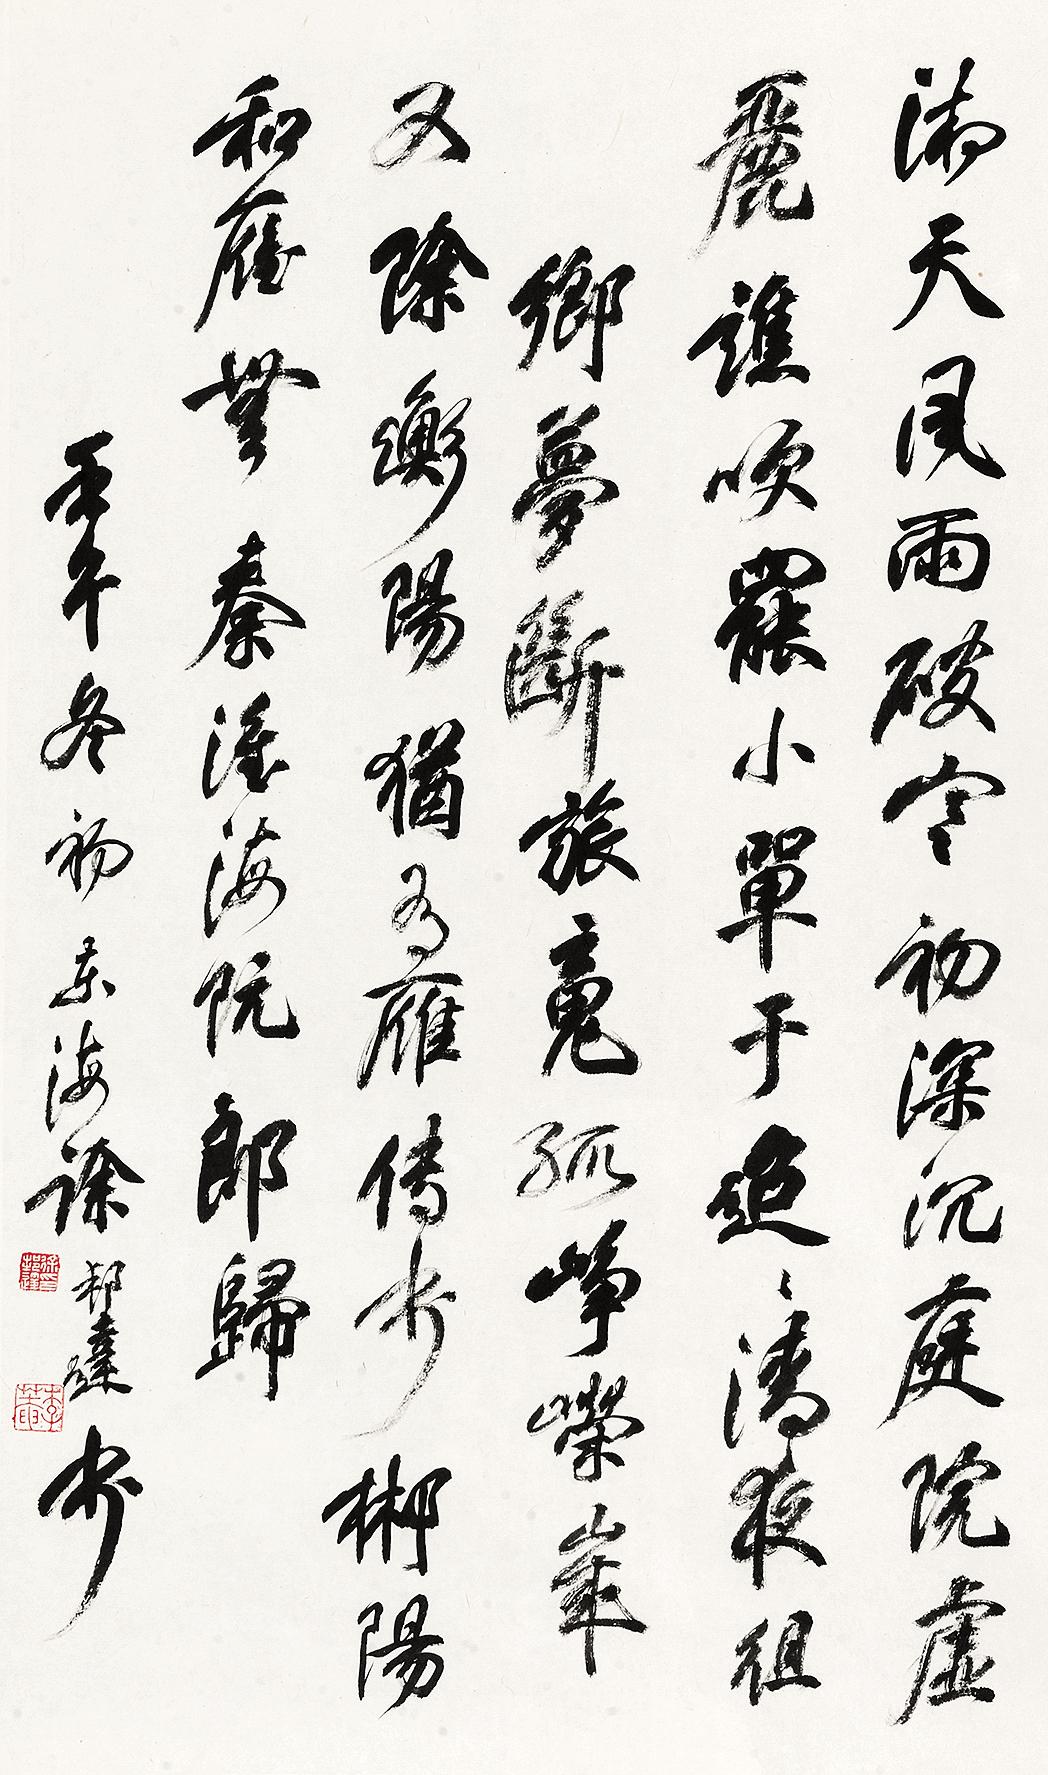 湘天風雨破寒初深沉庭院虛
麗譙吹罷小單于迢〻清夜徂
鄉夢斷旅魂孤崢嶸歲
又除衡陽猶有雁傳書郴陽
和雁無 秦淮海阮郎歸
壬午冬初東海徐邦達書